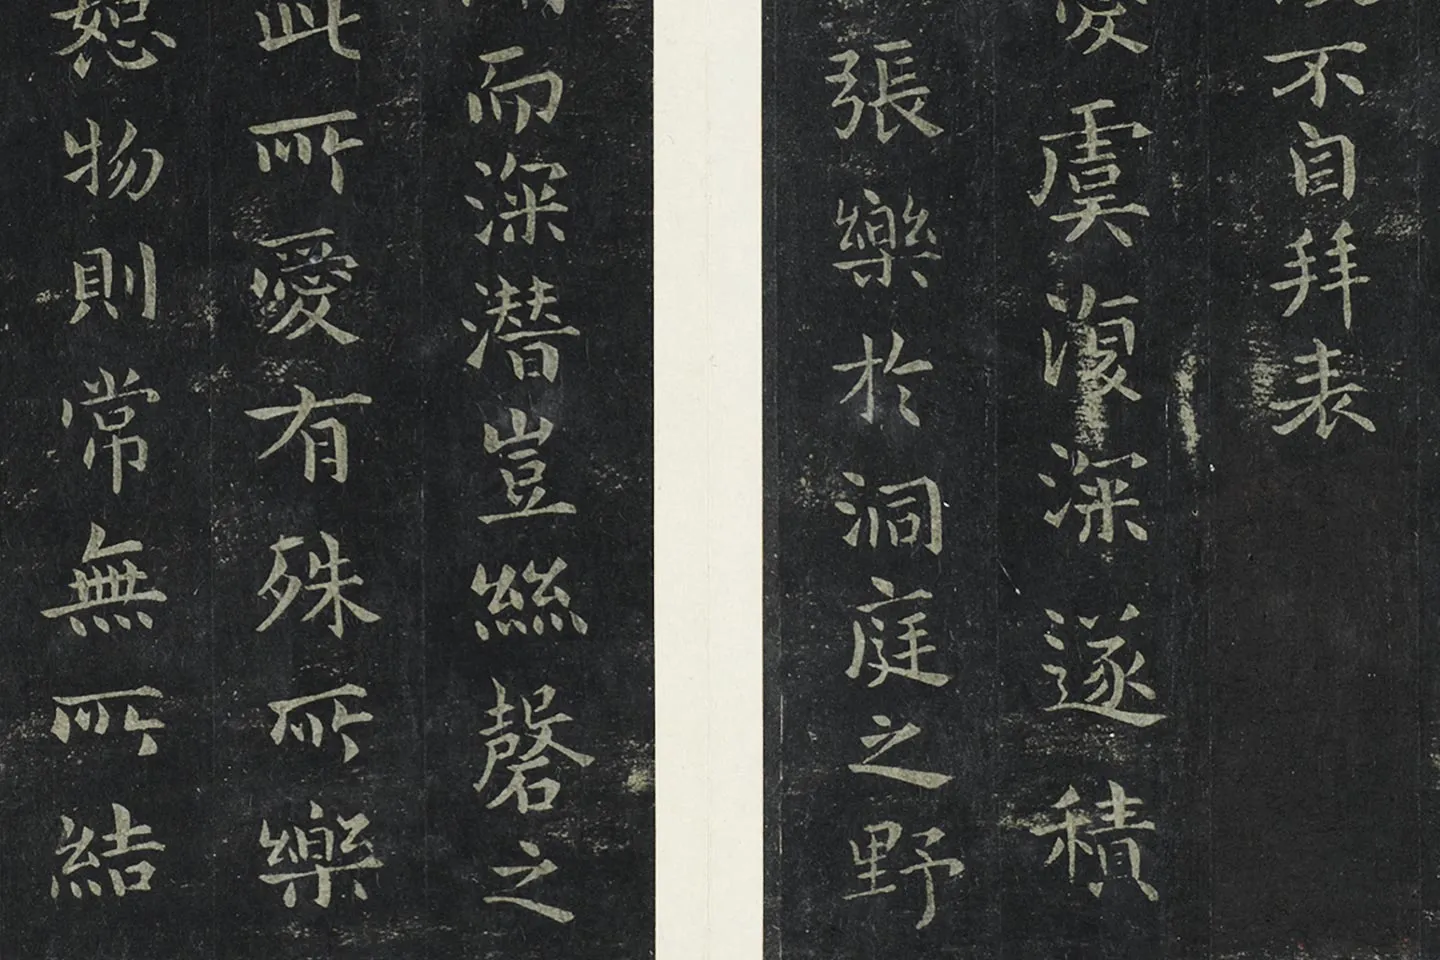 不自拜表
憂虞復深遂積
張樂於洞庭之野
而深潛豈絲磬之
此所愛有殊所樂
恕物則常無所結